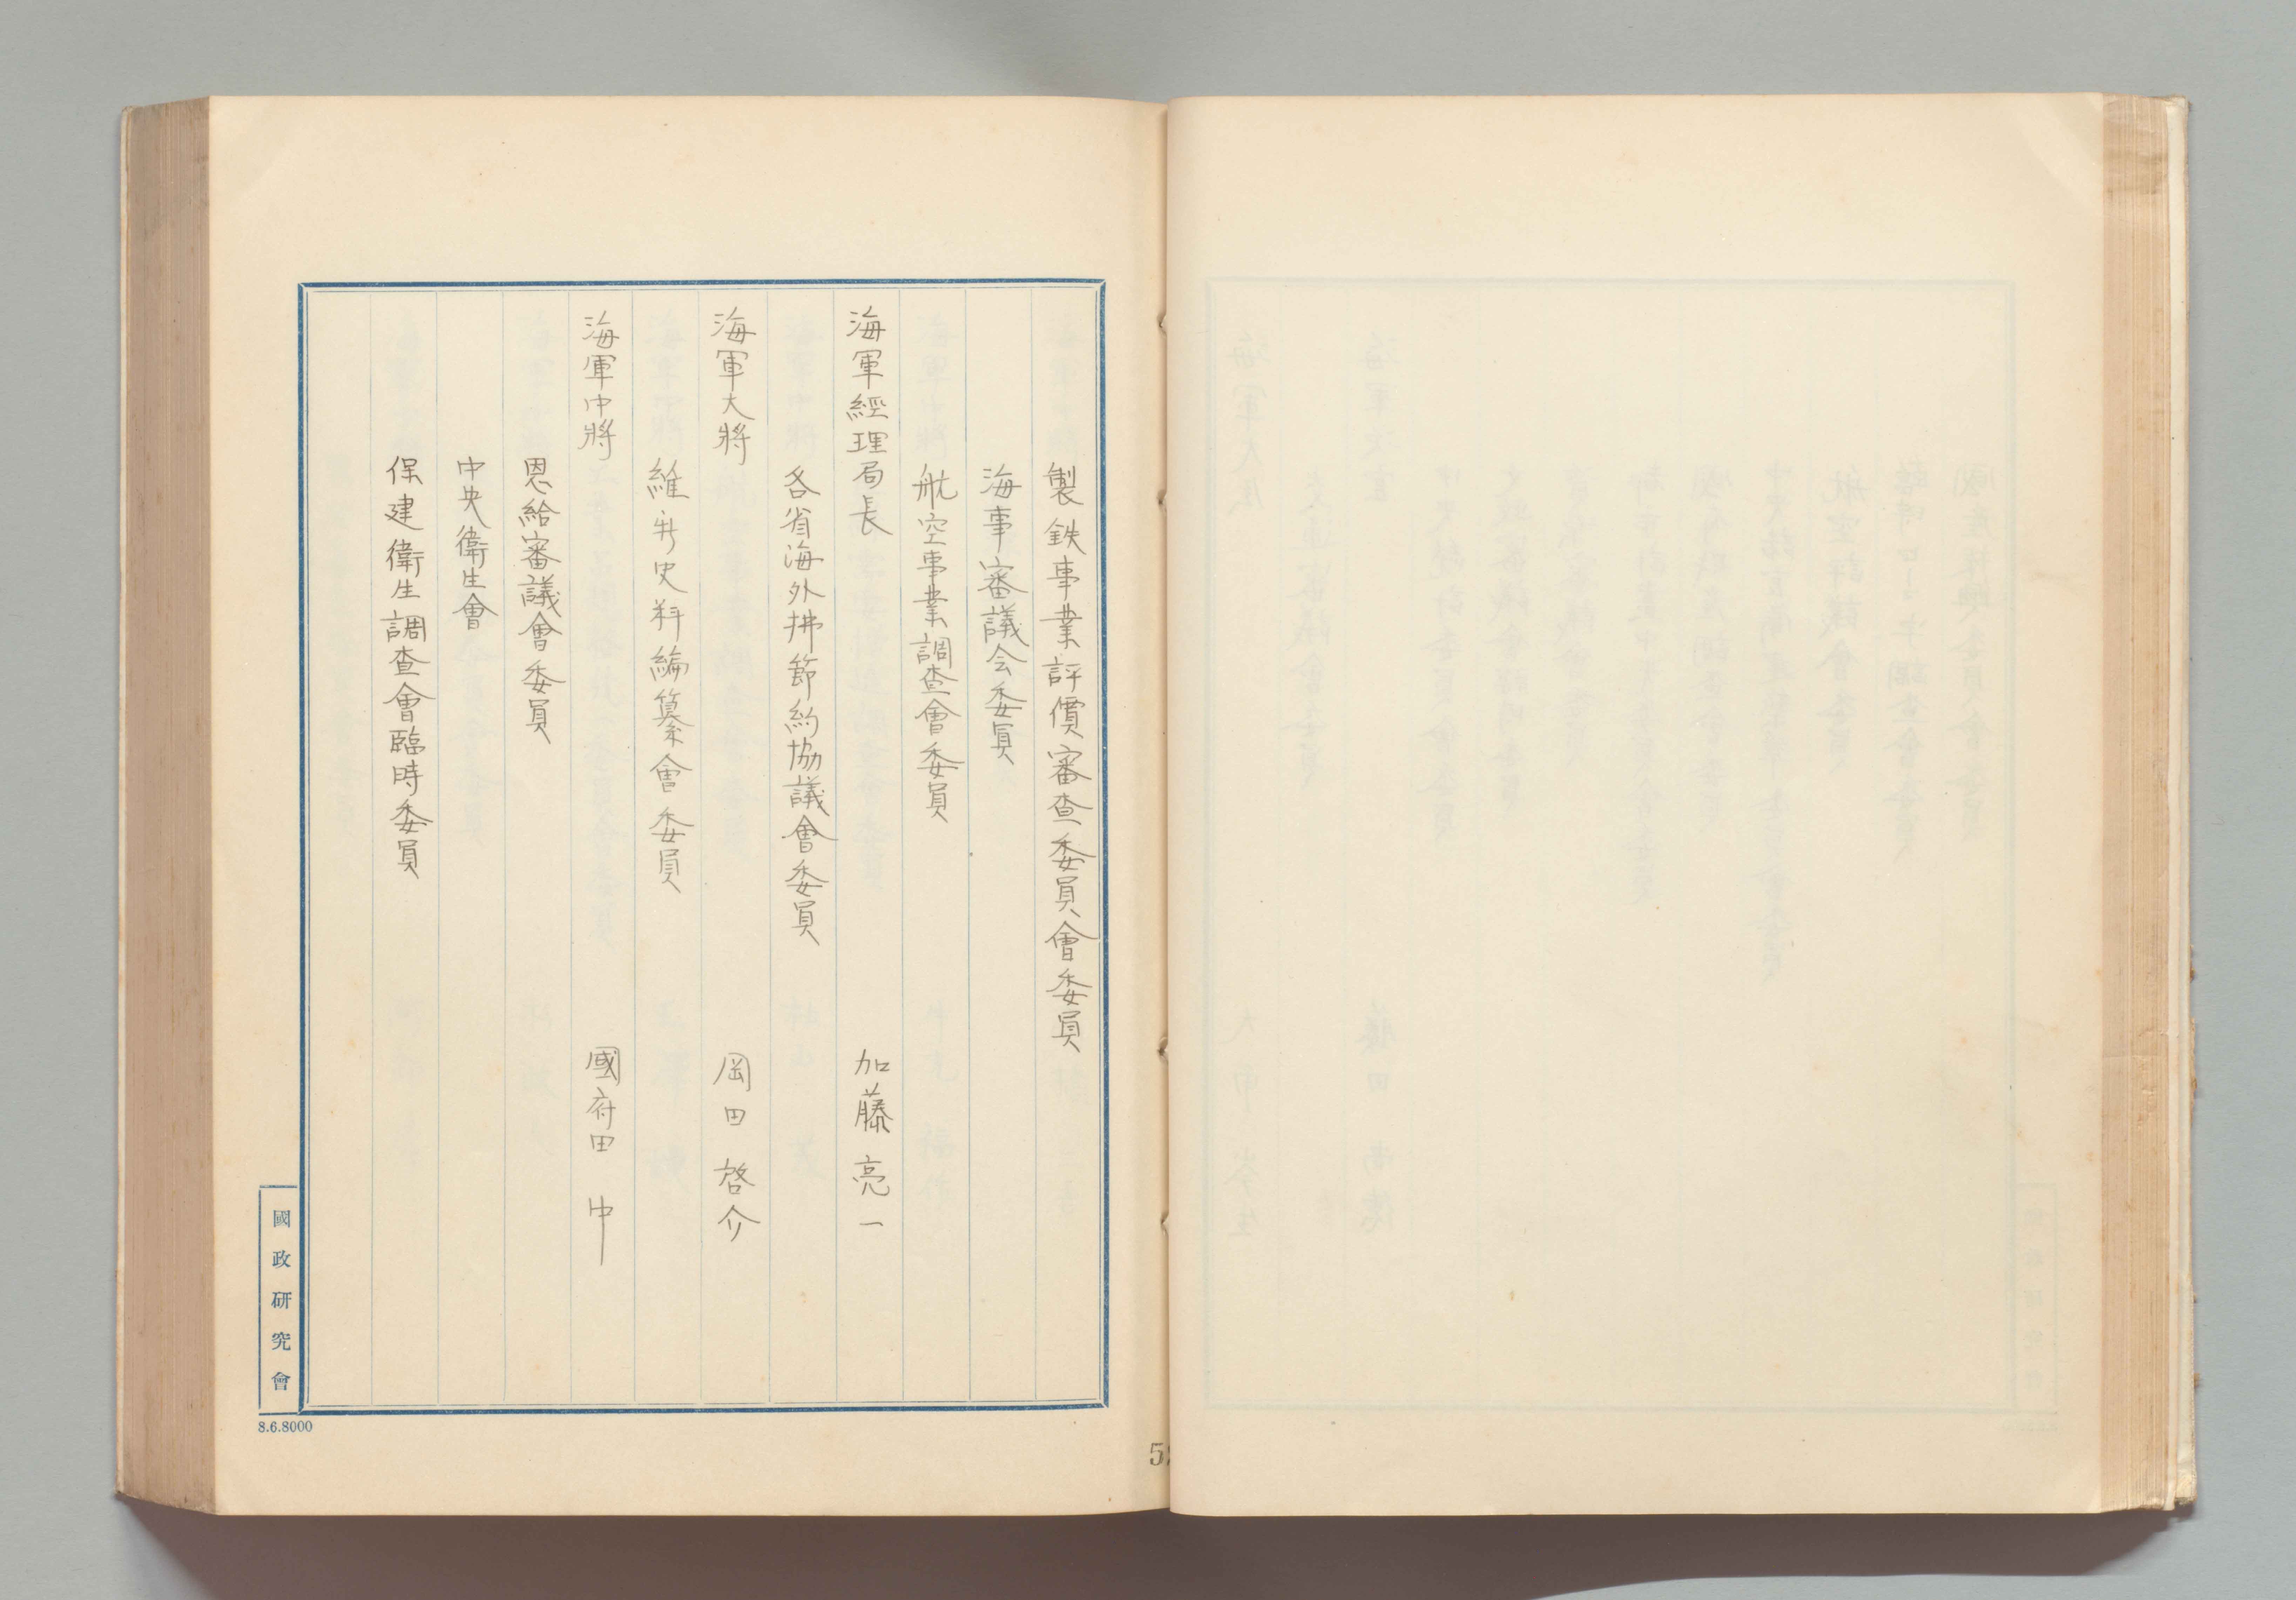 製鉄事業評價審査委員會委員
海事審議会委員
航空事業調査會委員
海軍經理局長 加藤亮一
各省海外拂節約協議會委員
海軍大将 岡田啓介
維新史料編纂會委員
海軍中将 國府田中
恩給審議會委員
中央衛生會
保健衛生調査會臨時委員
國政研究會
8.6.8000